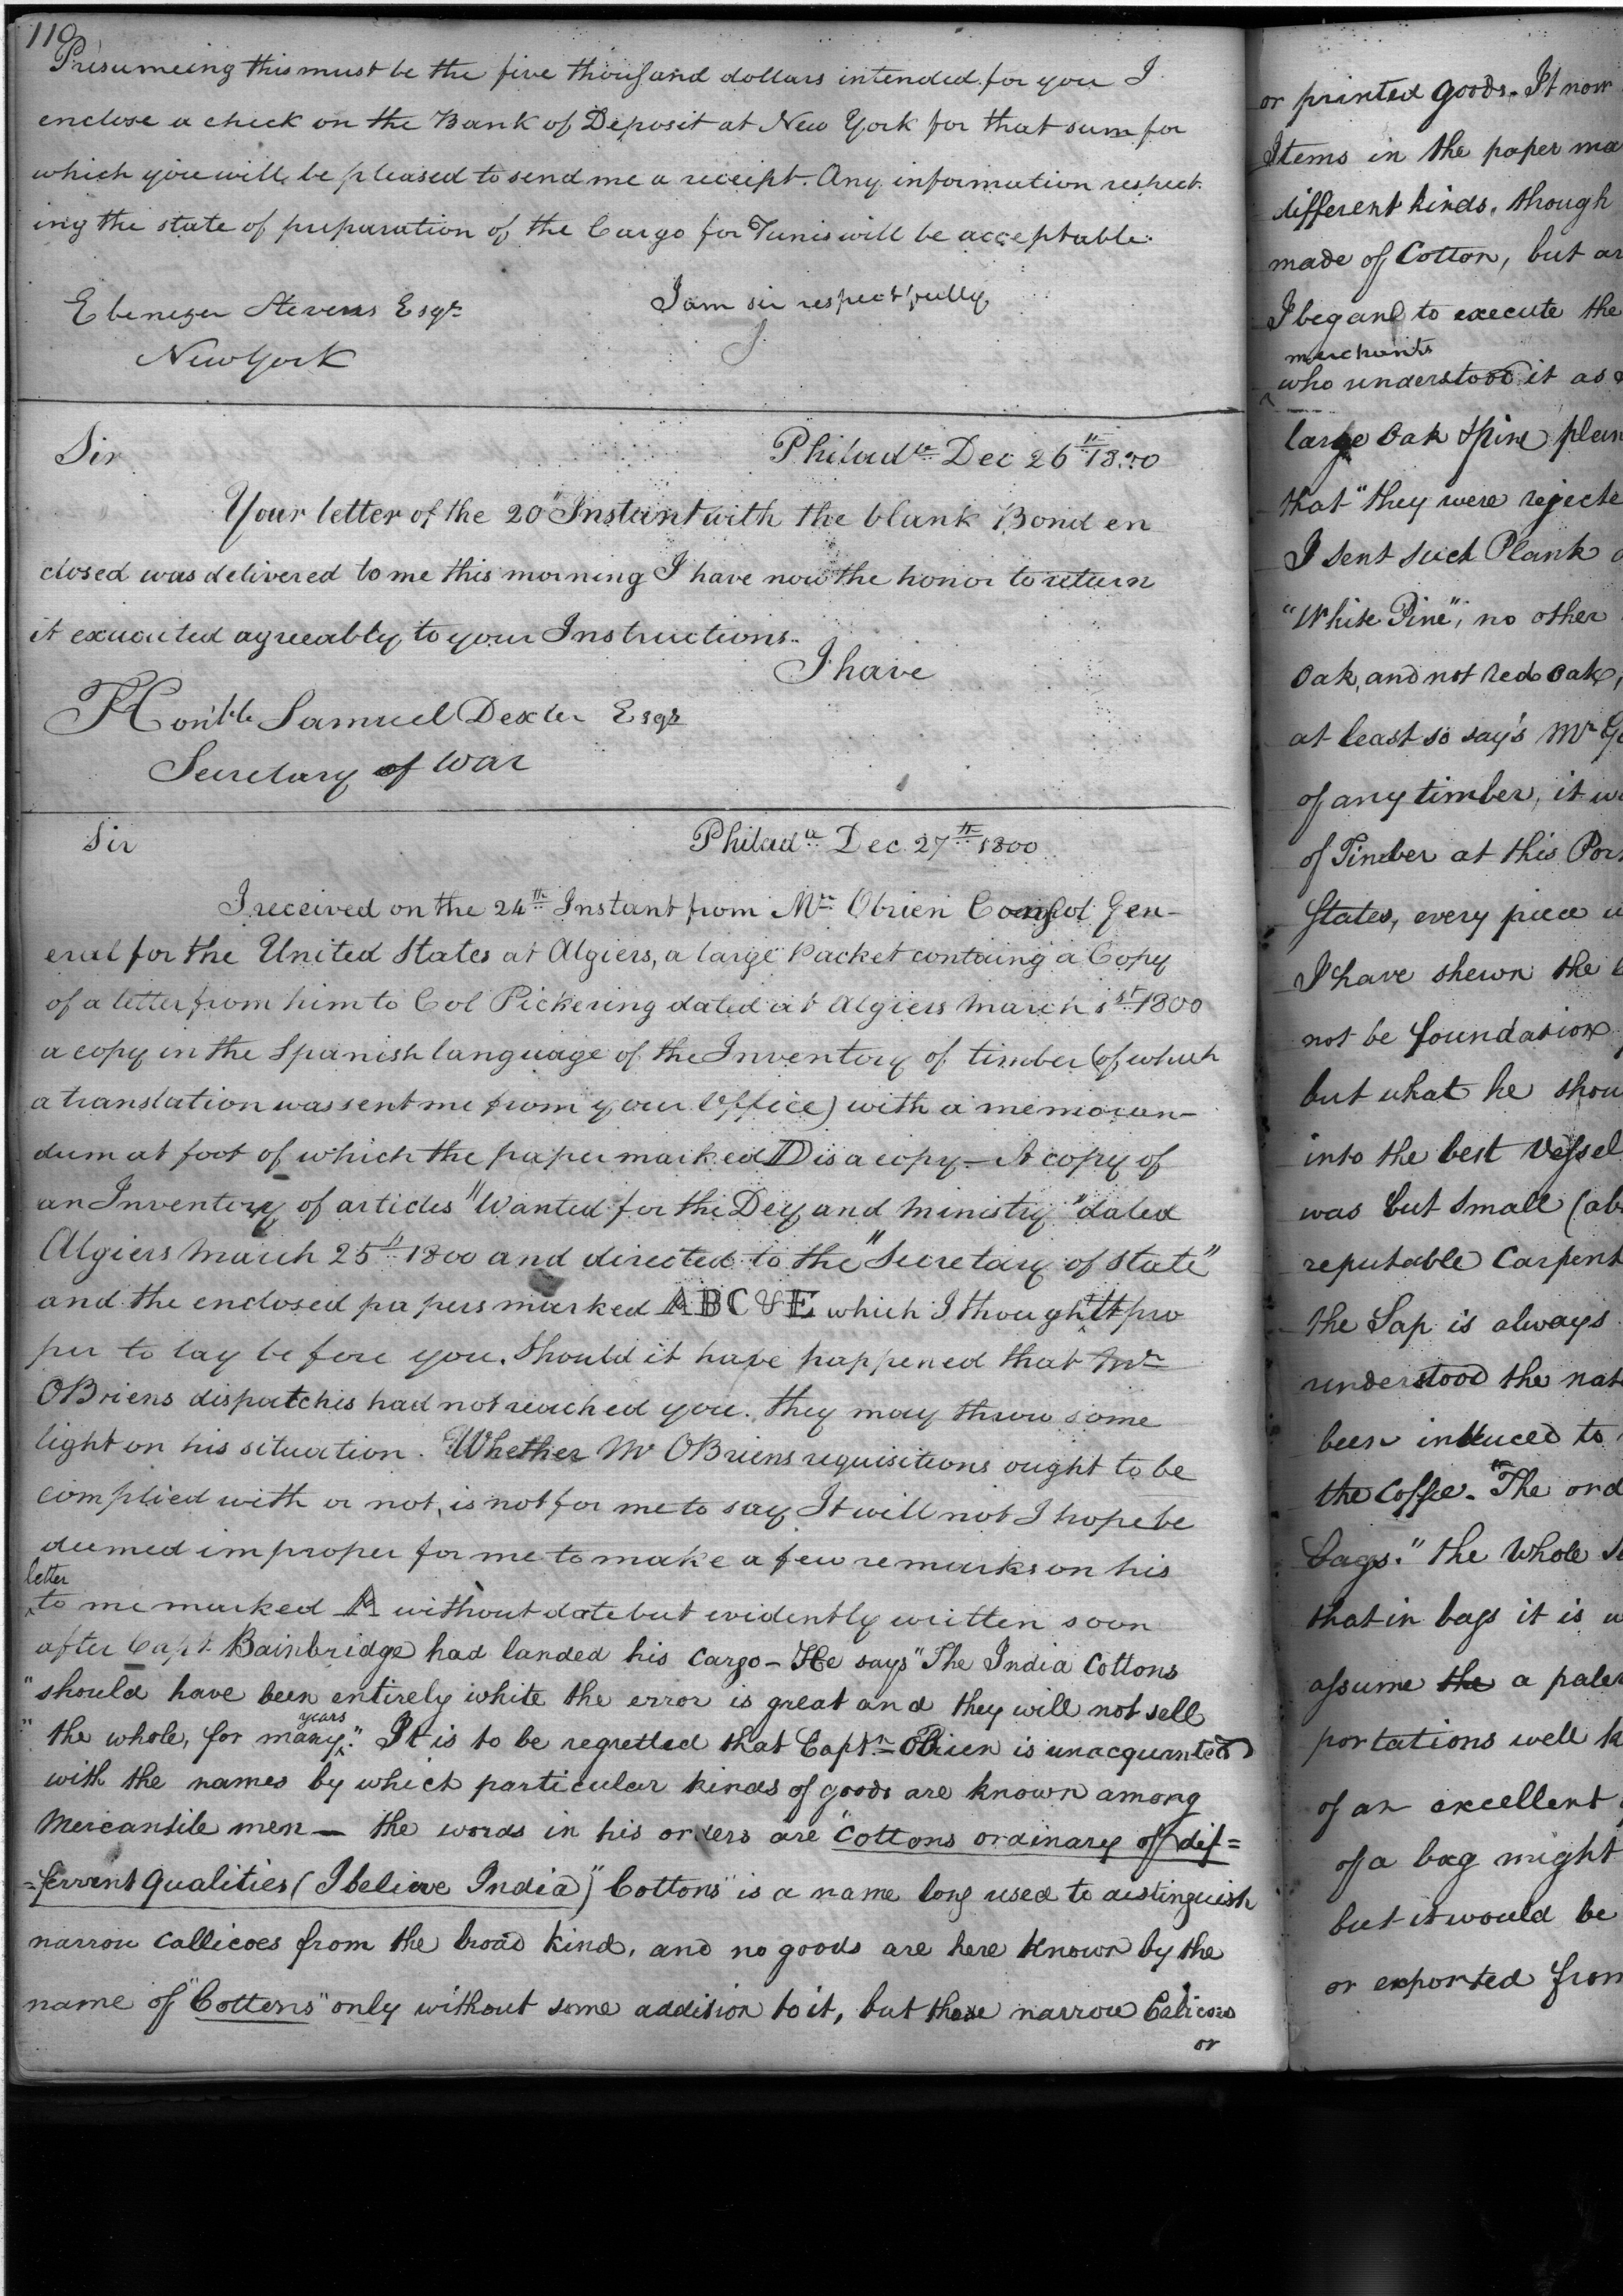 110
Presumeing this must be the five thousand dollars intended for you I
enclose a check on the Bank of Deposit at New York for that sum for
which you will be pleased to send me a receipt. Any information respect-
ing the state of preparation of the Cargo for Tunis will be acceptable.
I am sir respectfully
Ebenezer Stevens Esqr
New York
Sir
Philada Dec 26th 1800
Your letter of the 20th Instant with the blank Bond en
closed was delivered to me this morning I have now the honor to return
it executed agreeably to your Instructions.
I have
Honble Samuel Dexter Esqr
Secretary of War
Sir
Philada Dec 27th 1800
I received on the 24th Instant from Mr Obrien Consol Gen-
eral for the United States at Algiers, a large Packet containg a Copy
of a letter from him to Col Pickering dated at Algiers March 1st 1800
a copy in the Spanish language of the Inventory of timber (of which
a translation was sent me from your Office) with a memoran-
dum at foot of which the paper marked D is a copy — A copy of
an Inventory of articles "Wanted for the Dey and Ministry" dated
Algiers March 25th 1800 and directed to the "Secretary of State"
and the enclosed papers marked A B C & E which I thought pro
per to lay before you. Should it have happened that Mr
OBriens dispatches had not reached you. they may throw some
light on his situation. Whether Mr OBriens requisitions ought to be
complied with or not, is not for me to say It will not I hope be
deemed improper for me to make a few remarks on his
letter
to me marked A without date but evidently written soon
after Capt Bainbridge had landed his Cargo – He says "The India Cottons
"should have been entirely white the error is great and they will not sell
years
"the whole, for many." It is to be regretted that Captn OBrien is unacquinted
with the names by which particular kinds of goods are known among
Mercantile men — the words in his orders are "Cottons ordinary of dif=
=ferrent Qualities (I believe India)" Cottons" is a name long used to distinguish
narrow Callicoes from the broad kind, and no goods are here known by the
name of "Cottens" only without some addision to it, but these narrow Calicoes
or
or printed goods. It now
Items in the paper ma
different kinds, though
made of Cotton, but ar
I began to execute the
merchants
who understood it as
large Oak & Pine plan
that "they were rejecte
I sent such Plank
"White Pine", no other
Oak, and not red Oak,
at least so say's Mr
of any timber, it w
of Timber at this Por
States, every piece
I have shewn the
not be foundation
but what he shou
into the best Vessel
was but small (ab
reputable Carpent
the Sap is always
understood the nat
been induced to
the Coffee. "The ord
bags." the Whole
that in bags it is
assume the a paler
portations well k
of an excellent
of a bag might
but it would be
or exported from